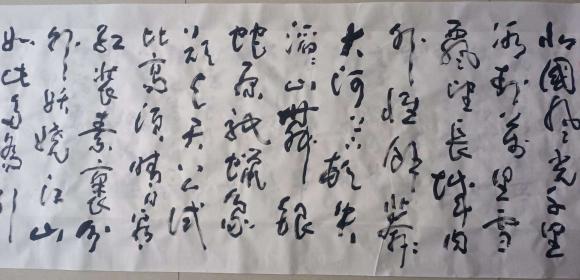 北國風光千里
冰封萬里雪
飄望長城内
外惟餘莽莽
大河上下頓失
滔滔山舞銀
蛇原馳蠟象
欲與天公試
比高須晴日看
紅裝素裹分
外妖嬈江山
如此多嬌引